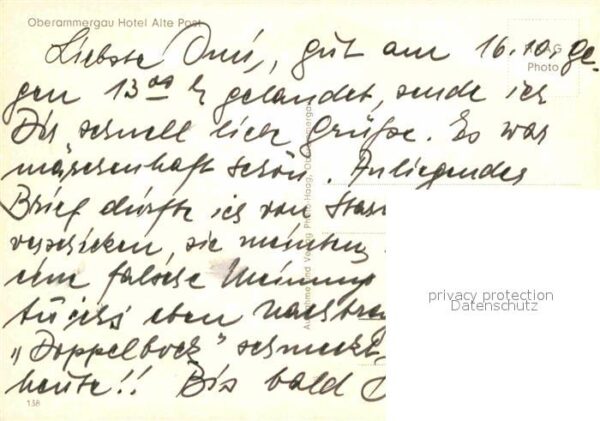 Oberammergau Hotel Alte Post
Liebste Omi, gut am 16.10. ge-
gen 13 00 h gelandet, sende ich
Dir schnell liebe Grüße. Es war
märchenhaft schön. Anliegenden
Brief dürfte ich von
verschicken, sie meinten
eine falsche Meinung
eben
„Doppelbock" schmeckt
heute!! Bis bald
HAAG
Photo
Aufnahme und Verlag Photo Haag, Oberammergau
privacy protection
Datenschutz
138